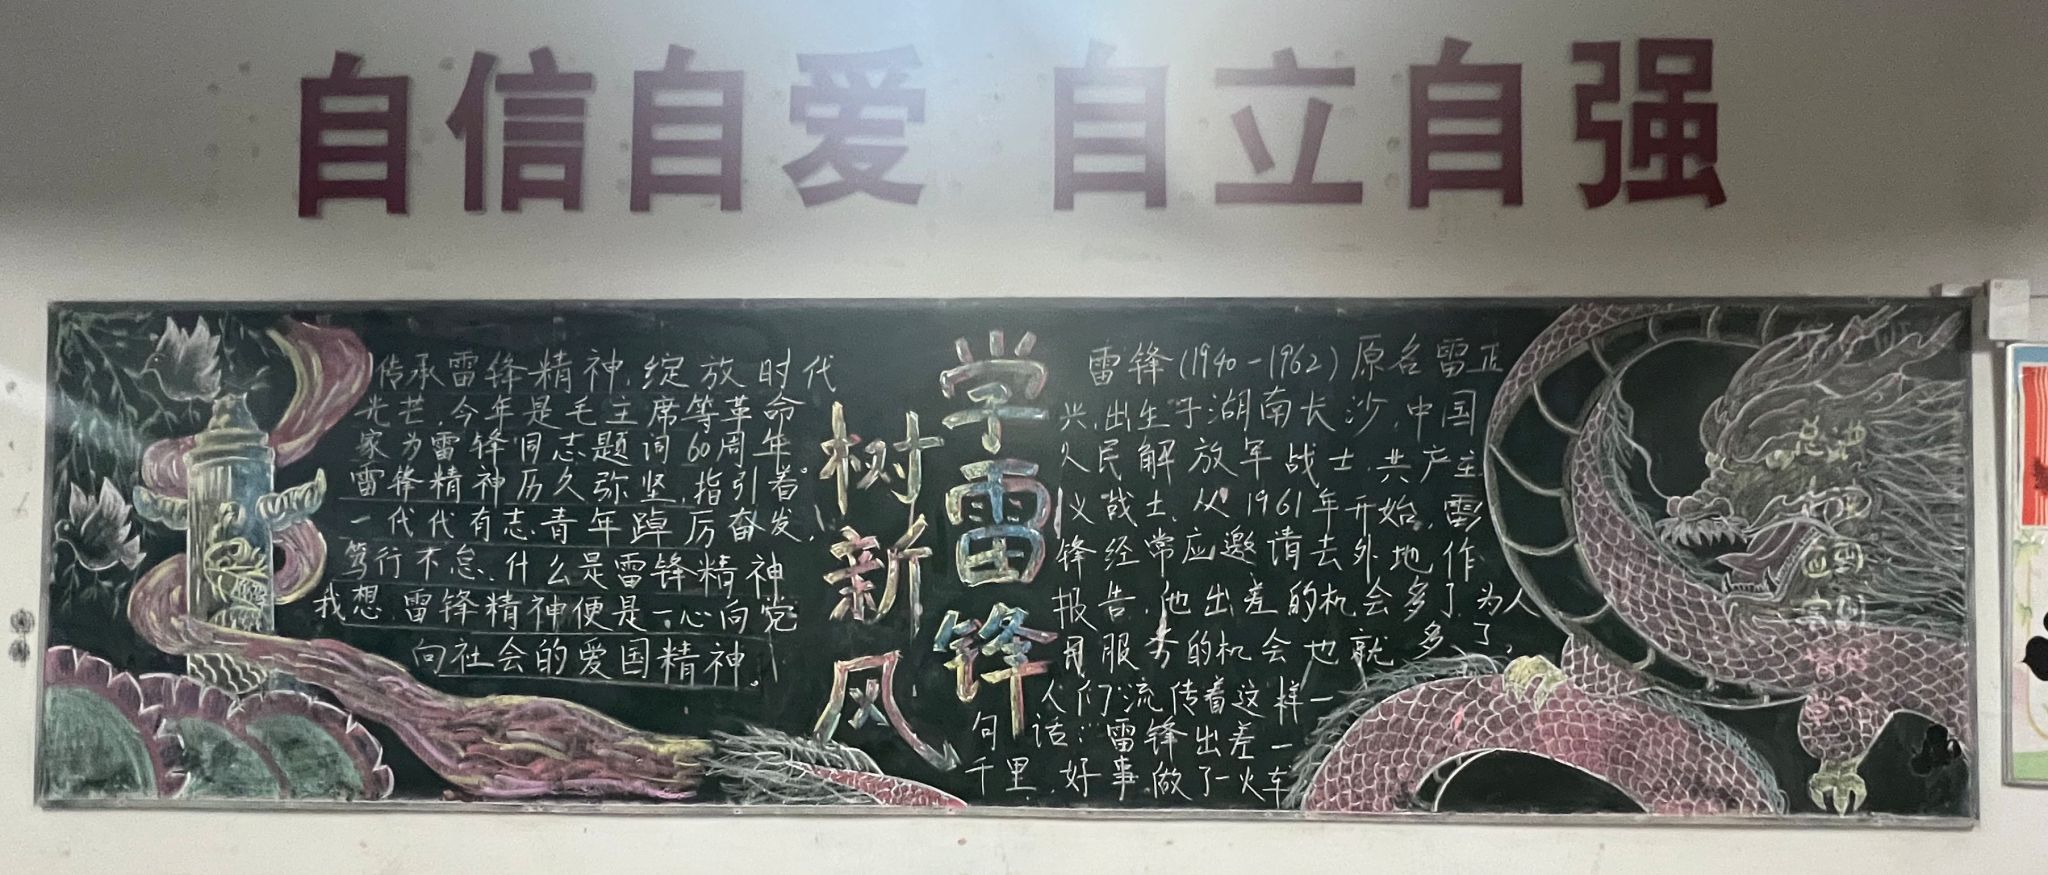 自信自爱 自立自强
传承雷锋精神,绽放时代
光芒,今年是毛主席等革命
家为雷锋同志题词60周年。
雷锋精神历久弥坚,指引着
一代代有志青年踔厉奋发,
笃行不怠.什么是雷锋精神
我想,雷锋精神便是一心向党
向社会的爱国精神。
学雷锋
树新风
雷锋(1940-1962)原名雷正
兴,出生于湖南长沙,中国
人民解放军战士,共产主
义战士,从1961年开始,雷
锋经常应邀请去外地作
报告,他出差的机会多了,为人
民服务的机会也就多了,
人们流传着这样一
句话:雷锋出差一
千里,好事做了一火车